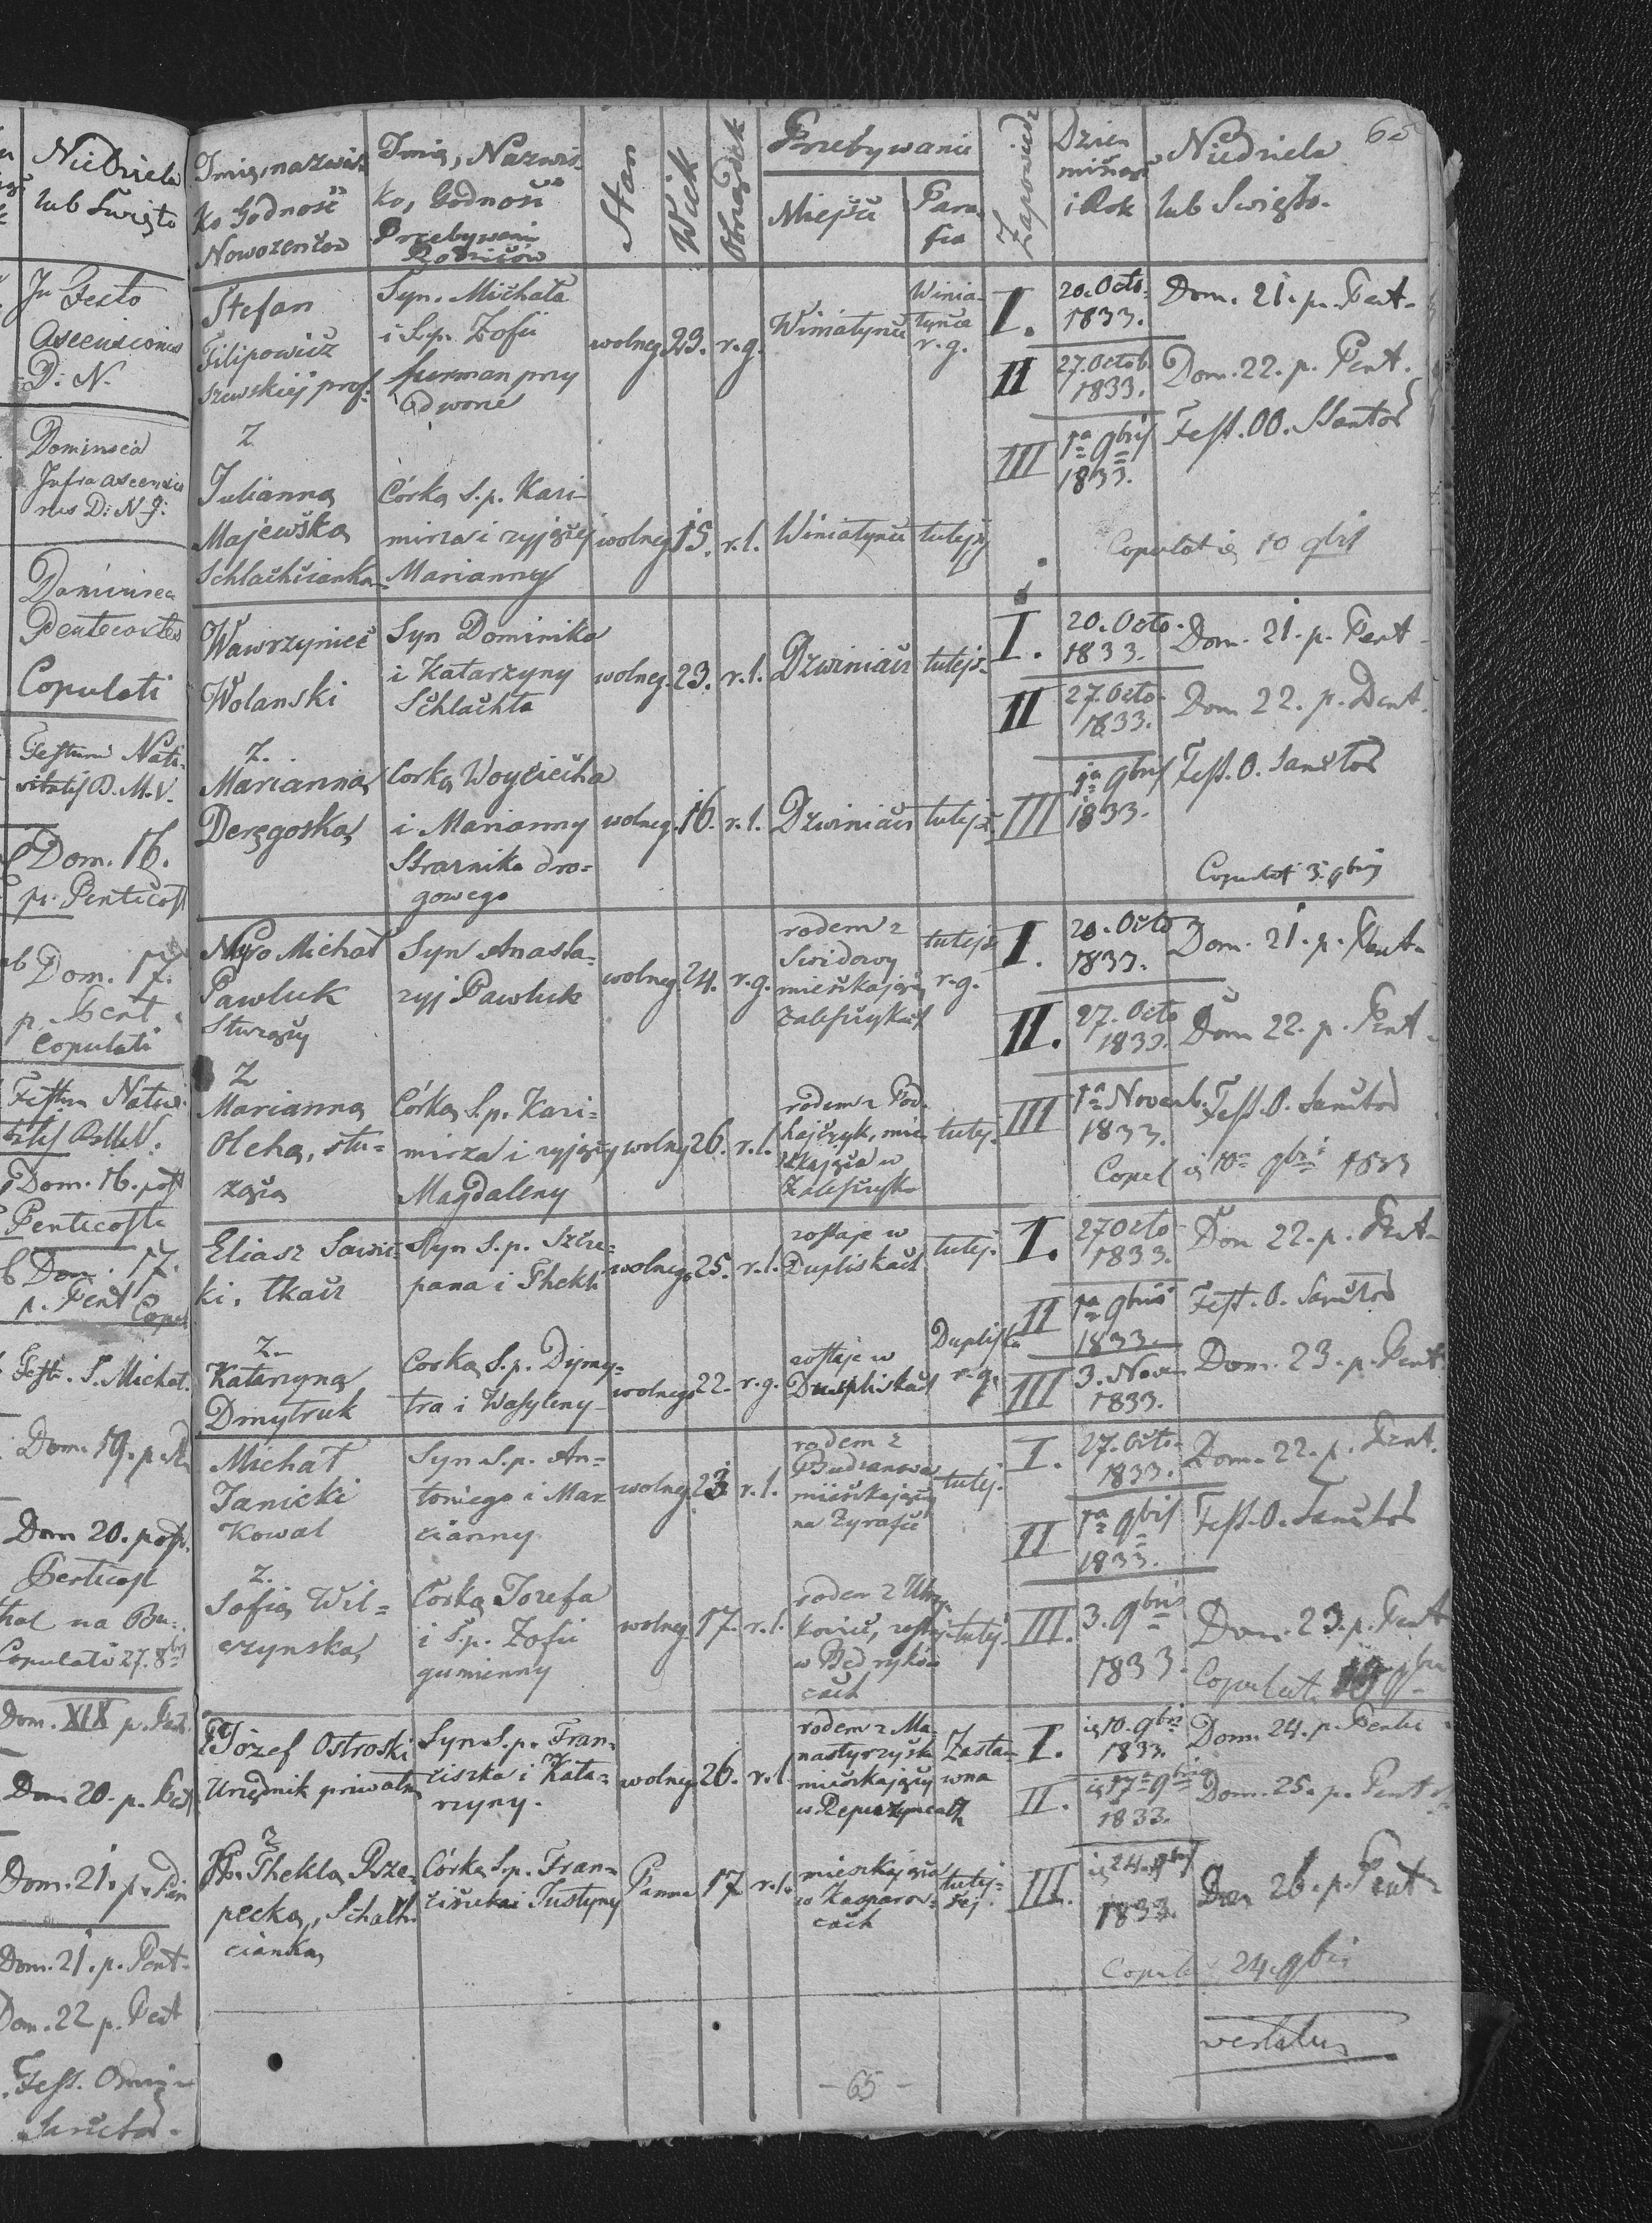 Niedziela
lub Swięto
In Festo
Ascensionis
D. N.
Dominica
Infra ascensio
nis D. N. J.
Dominica
Pentecostes
Copulati
Festum Nati-
vitatis B. M. V.
Dom. 16.
p. Penticost
Dom. 17.
p. Pent
Copulati
Festum Nativi
Dom. 16. post
Penticoste
Dom. 17.
p. Pent Copul
Fest. S. Michal.
Dom. 19. p.
Dom 20. post
Penticost
na Bu-
Copulati 27. 8bris
Dom. XIX p. Pent.
Dom 20. p. Pent
Dom. 21. p. Pen
Dom. 21. p. Pent-
Dom. 22 p. Pent
Fest. Omni-
Sanctor.
65
Imię, nazwis-
ko Godność
Nowożeńców
Imię, Nazwis-
ko, Godność
Przebywanie
Rodziców
Stan
Wiek
Obrządek
Przebywanie
Miejsce
Para
fia
Zapowiedz
Dzien
miesiąc
i Rok
Niedziela
lub Swięto.
Stefan
Filipowicz
szewskiej prof.
Syn. Michała
i S.p. Zofii
furman przy
Dworze
wolneg. 23. r.g.
Winiatyńce
Winia-
tyńce
r.g.
I. 20. Octo.
1833. Dom. 21. p. Pent-
II 27. Octob.
1833. Dom. 22. p. Pent.
III 1a 9bris
1833. Fest. OO. SSantor
z
Julianna
Majewska
Schlachcianka
Córka S.p. Kazi-
mirza i żyjącej
Marianny
wolneg 15. r.l. Winiatyńce tutejsz
Copulat ią 10 9bris
Wawrzyniec
Wolanski
Syn Dominika
i Katarzyny
Schlachta
wolneg. 23. r.l. Dzwiniacz tutejs-
I. 20. Octo.
1833. Dom. 21. p. Pent-
II 27. Octo.
1833. Dom 22. p. Pent.
z.
Marianna
Deręgoska
Corka Woyciecha
i Marianny
Strarnika dro=
gowego
wolneg. 16. r.l. Dzwiniacz tutejs.
III 1a 9bris
1833. Fest. O. Sanctor
Copulat 3. 9bris
Michał
Pawluk
Stużący
Syn Anasta=
zyj Pawluk
wolneg. 24. r.g.
rodem z
Swidowy
mieszkający
Zaleszczykach
tutejs
r.g.
I. 20. Octo
1833. Dom. 21. p. Pent-
II. 27. Octo
1833. Dom 22. p. Pent-
z
Marianna
Olcha, słu=
żąca
Córka S.p. Kazi=
mirza i żyjący
Magdaleny
wolny 26. r.l.
rodem z Pod
hajczyk, mie
szkająca w
Zaleszczyk
tutej.
III 1a Novemb.
1833. Fest. O. Sanctor
Copul ią 10a 9bris 1833
Eliasz Sawic-
ki, tkacz
Syn S.p. Szcze=
pana i Thekli
wolneg. 25. r.l.
zostaje w
Dupliskach
tutej.
I. 27 Octo
1833. Dom 22. p. Pent-
II 1a 9bris
1833. Fest. O. Sanctor
z.
Katarzyna
Dmytruk
Corka S.p. Dymy=
tra i Wasyleny
wolneg 22. r.g.
zostaje w
Dupliskach
Dupliska
r.g.
III 3. Nove
1833. Dom. 23. p. Pent.
Michał
Janicki
Kowal
Syn S.p. An=
toniego i Mar
cianny
wolneg. 23 r.l.
rodem z
Budzanowa
mieszkający
na Zyrafie
tutej.
I. 27. Octo.
1833. Dom. 22. p. Pent.
II 1a 9bris
1833. Fest. O. Sanctor
z.
Sofia Wil=
czynska
Corka Jozefa
i S.p. Zofii
gumienny
wolneg. 17. r.l.
rodem z
w Bedryko
cach
tutej.
III. 3. 9bris
1833. Dom. 23. p. Pent
Copulat 9bris
Józef Ostroski
Urzędnik priwatn
Syn S.p. Fran-
ciszka i Kata-
rzyny.
wolneg. 26. r.l
rodem z Ma
nastyrzysk
mieszkający
w Repuzyncach
Zasta-
wna
I. ią 10. 9bris
1833. Dom. 24. p. Pente
II. ią 17a 9bris
1833. Dom. 25. p. Pent
z
P. Thekla Rze-
pecka, Schach
cianka
Córka S.p. Fran-
ciszka i Justyny
Panna 17 r.l.
mieszkająca
w Kasparow-
cach
tutej-
szej.
III. ią 24. 9bris
1833. Dom 26. p. Pent-
Copulat 24. 9bris
vertatur
- 65 -